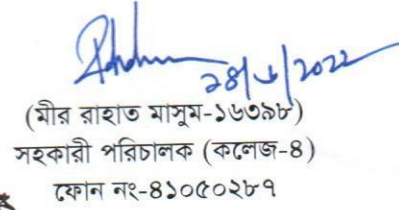 ২৪/৬/2022
(মীর রাহাত মাসুম-১৬৩৯৮)
সহকারী পরিচালক (কলেজ-৪)
ফোন নং-৪১০৫০২৮৭